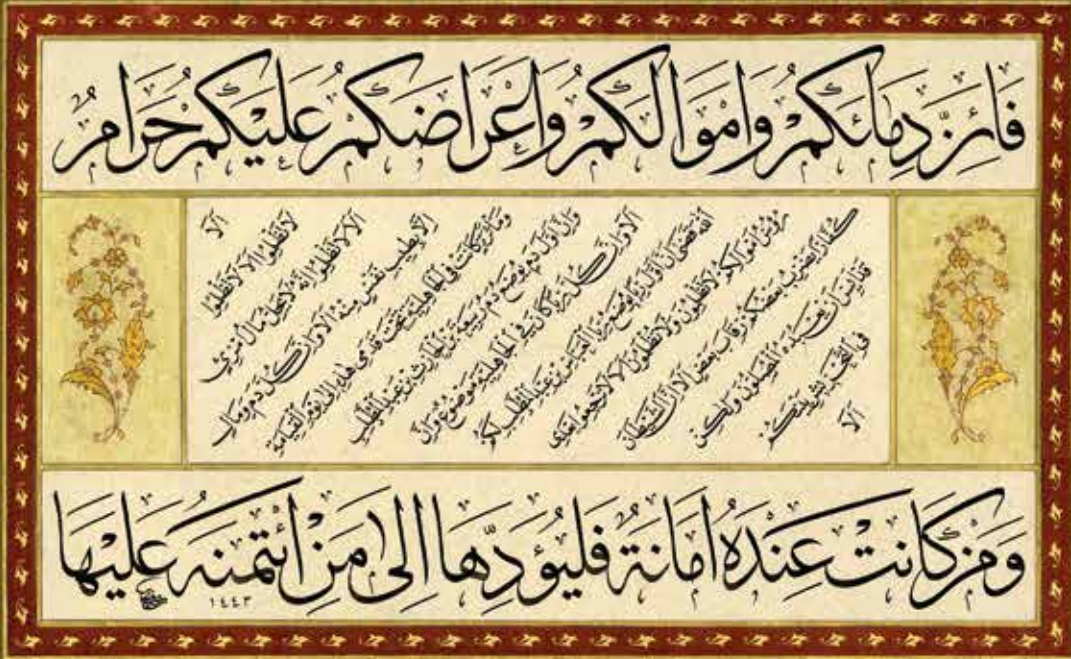 فَاِنَّ دِمَائَكُمْ وَاَمْوَالَكُمْ وَاَعْرَاضَكُمْ عَلَيْكُمْ حَرَامٌ
الا
لا تظلموا الا لا تظلموا
الا لا تظلموا انه لا يحل مال امرئ
الا بطيب نفس منه الا وان كل دم ومال
ومأثرة كانت في الجاهلية تحت قدمي هذه الى يوم القيامة
وان اول دم يوضع دم ربيعة بن الحارث بن عبد المطلب
الا وان كل ربا كان في الجاهلية موضوع وان
الله قضى ان اول ربا يوضع ربا العباس بن عبد المطلب لكم
رؤس اموالكم لا تظلمون ولا تظلمون الا لا ترجعوا بعدي
كفارا يضرب بعضكم رقاب بعض الا ان الشيطان
قد ايس ان يعبده المصلون ولكن
في التحريش بينكم
الا
وَمَنْ كَانَتْ عِنْدَهُ اَمَانَةٌ فَلْيُؤَدِّهَا اِلَى مَنِ ائْتَمَنَهُ عَلَيْهَا
١٤٤٣